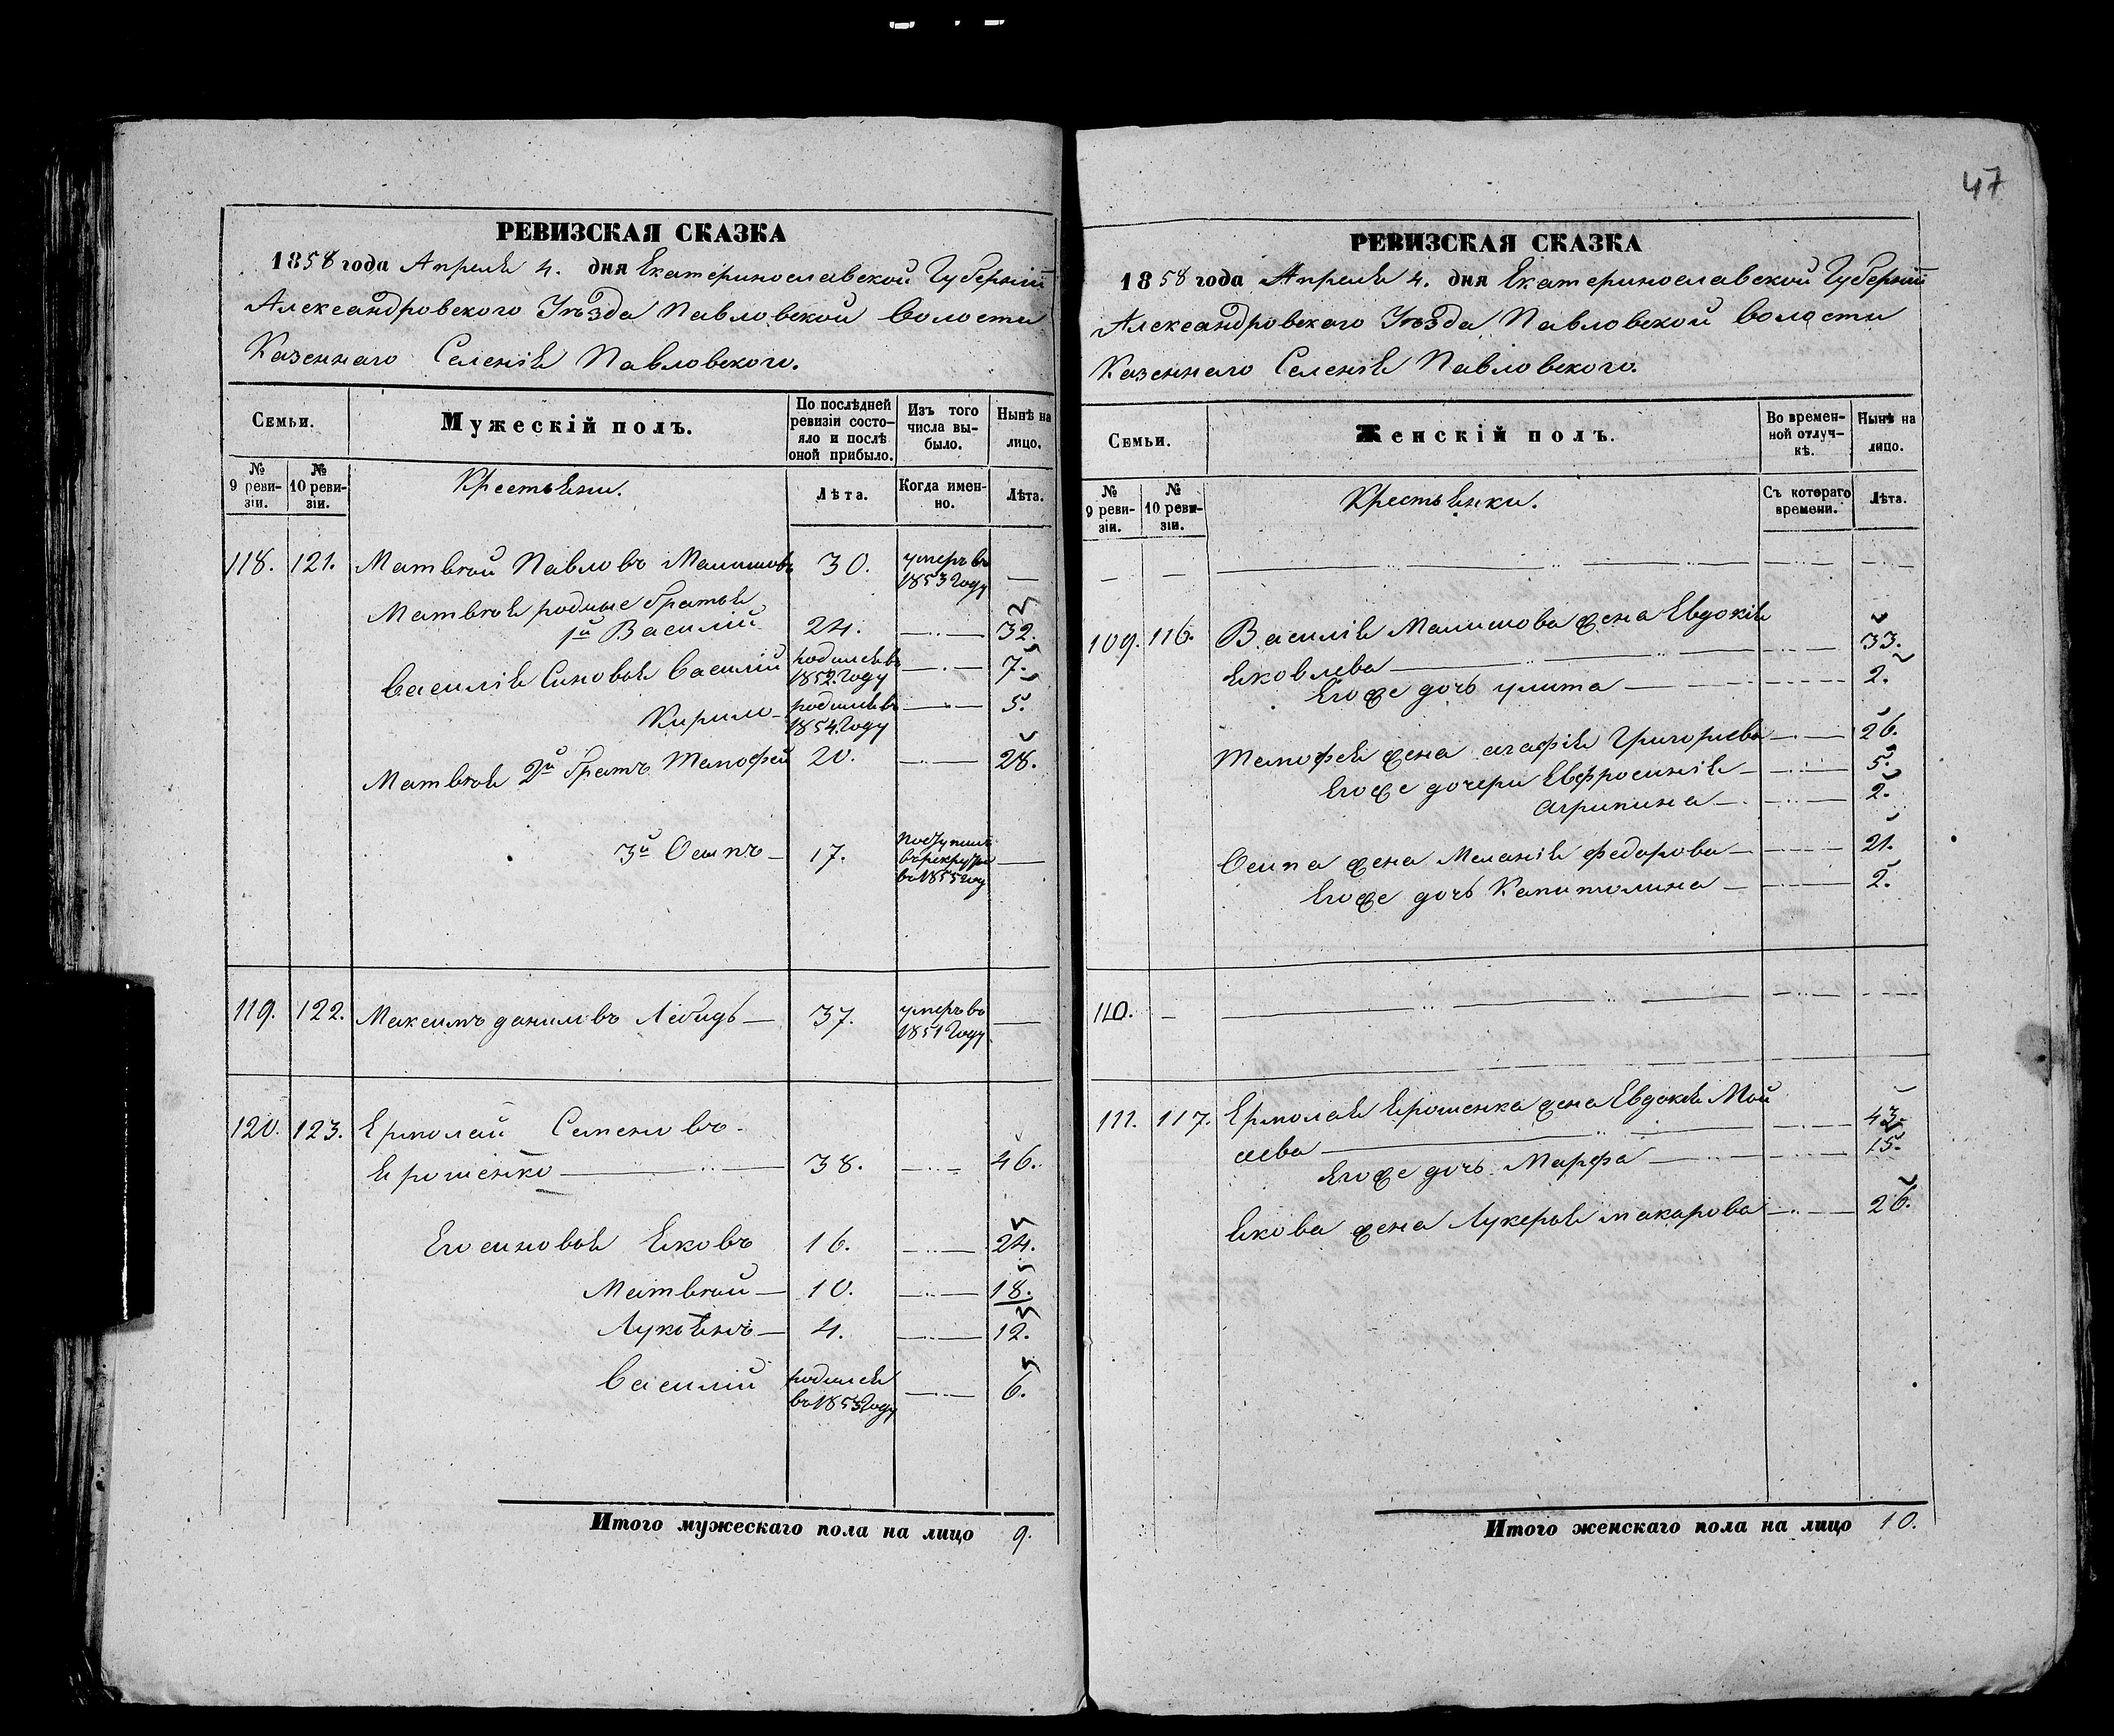 47
РЕВИЗСКАЯ СКАЗКА
1858 года Апреля 4. дня Екатеринославской Губерніи
Александровского Уѣзда Павловской Волости
Казеннаго Селенія Павловского.
Семьи.
Мужескій полъ.
По послѣдней ревизіи состояло и послѣ оной прибыло.
Изъ того числа выбыло.
Нынѣ на лицо.
№ 9 ревизіи.
№ 10 ревизіи.
Крестьяни.
Лѣта.
Когда именно.
Лѣта.
118. 121. Матвѣй Павловъ Малишовъ 30. умеръ въ 1853 Году —
Матвѣя родные братья
1й Василий 24. — 32.
Василія Синовья Василій родился въ 1852. Году — 7.
Кирило родился въ 1854. Году — 5.
Матвѣя 2й братъ Тимофей 20. — 28.
3й Осипъ — 17. Поступилъ въ рекруты въ 1855 году —
119. 122. Максимъ даниловъ Лебидь — 37. умеръ въ 1851 Году —
120. 123. Ермолай Семеновъ
Ярошенко — 38. — 46.
Его синовья Яковъ 16. — 24.
Матвѣй — 10. — 18.
Лукьянъ — 4. — 12.
Василій родился въ 1853 Году — 6.
Итого мужескаго пола на лицо 9.
РЕВИЗСКАЯ СКАЗКА
1858 года Апреля 4. дня Екатеринославской Губерніи
Александровскаго Уѣзда Павловской Волости
Казеннаго Селенія Павловского.
Семьи.
Женскій полъ.
Во временной отлучкѣ.
Нынѣ на лицо.
№ 9 ревизіи.
№ 10 ревизіи.
Крестьянки.
Съ котораго времени.
Лѣта.
109. 116. Василія Малишова жена Евдокія
Яковлева — 33.
Егоже дочь улита — 2.
Тимофея жена агафія Григориева — 26.
Егоже дочери Евфросинія — 5.
Агрипина — 2.
Осипа жена Меланія федорова — 21.
Егоже дочь Капитолина — 2.
110. —
111. 117. Ермолая Ярошенка жена Евдокія Мой
сеева — 43.
Егоже дочь Марфа — 15.
Якова жена Лукерья макарова — 26.
Итого женскаго пола на лицо 10.